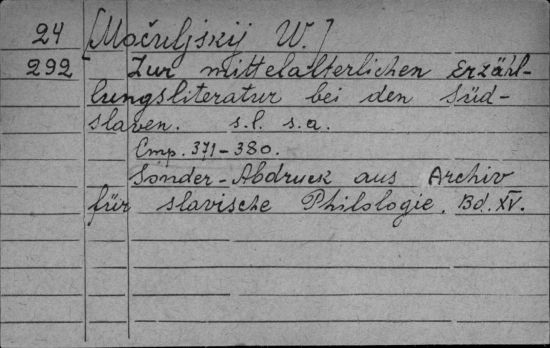 24 [Močuljskij W.]
292 Zur mittelalterlichen Erzähl-
lungsliteratur bei den Süd-
slaven. s.l. s.a.
Cmp. 371-380.
Sonder-Abdruck aus Archiv
für slavische Philologie. Bd. XV.